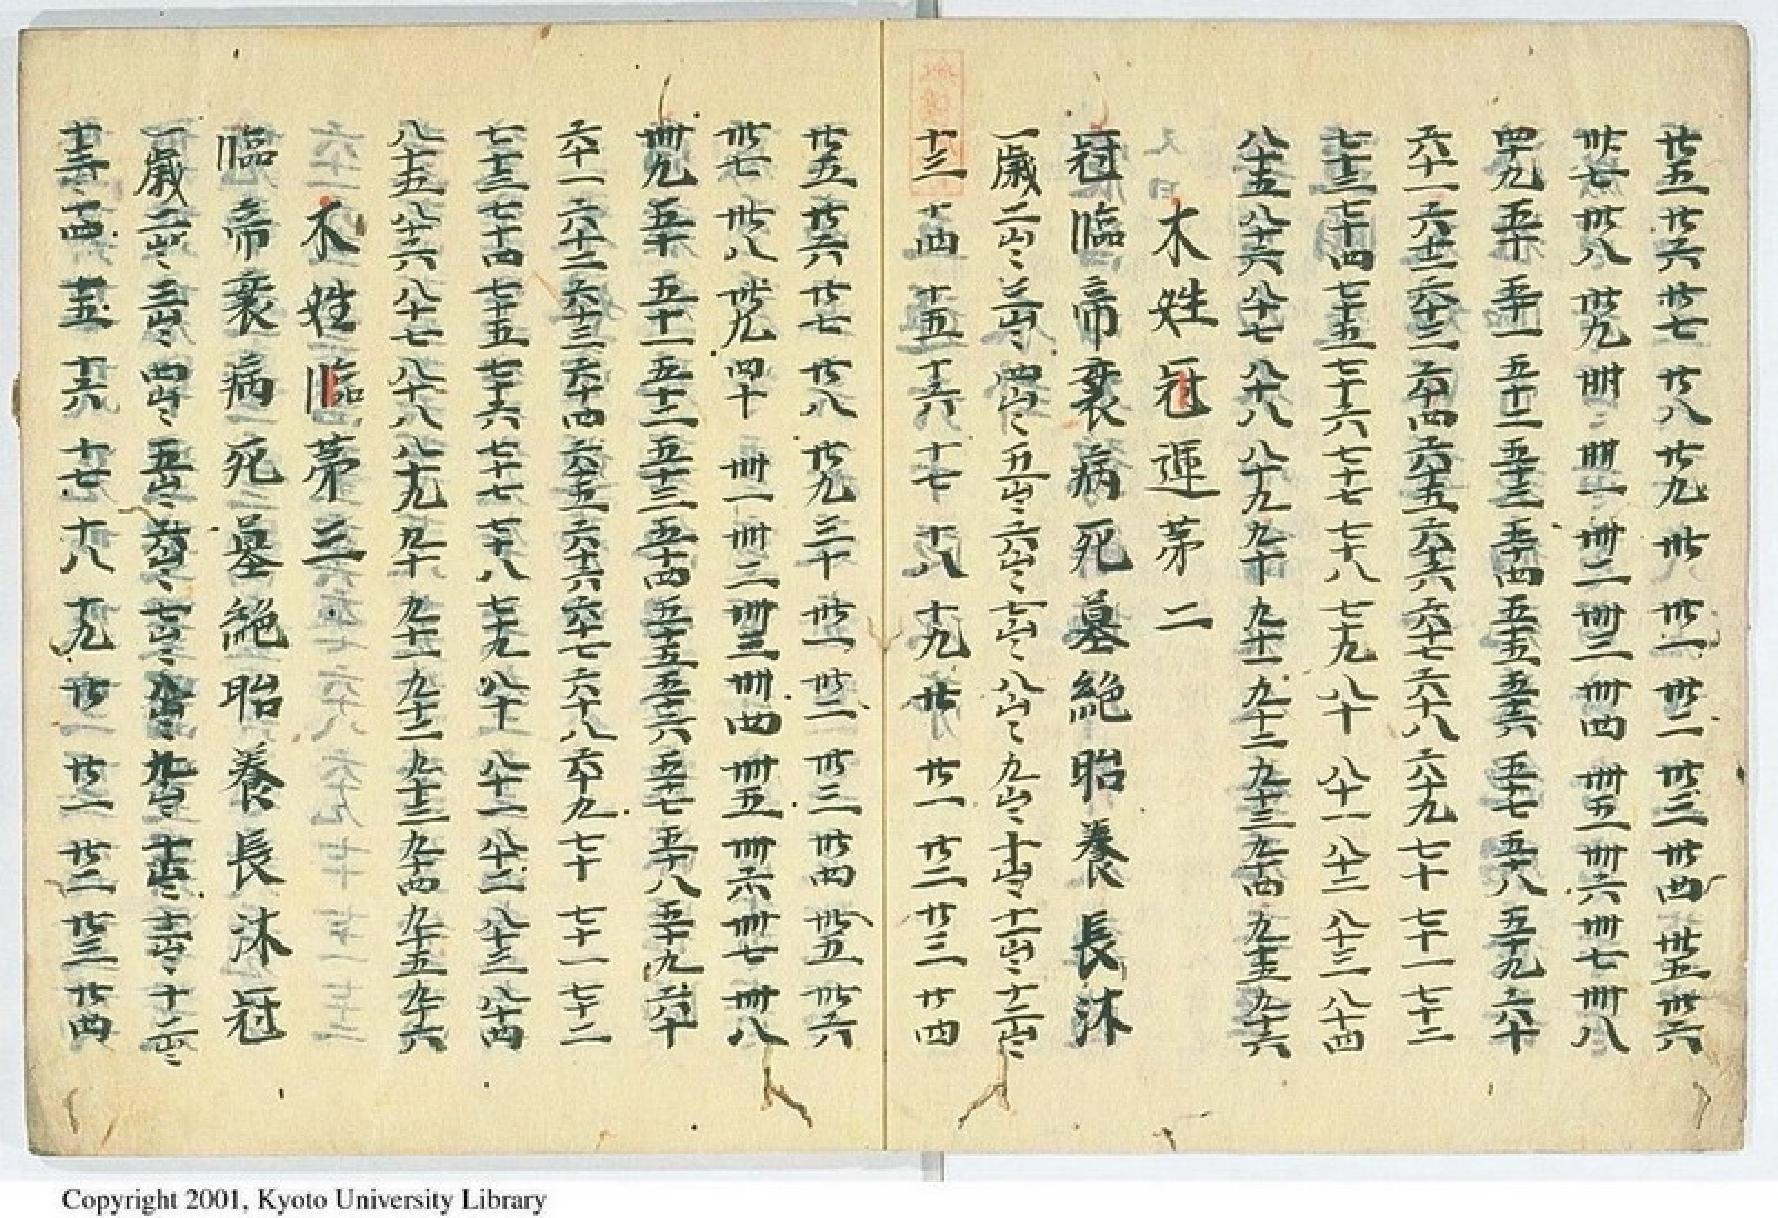 廿五 廿六 廿七 廿八 廿九 丗 丗一 丗二 丗三 丗四 丗五 丗六
丗七 丗八 丗九 卌〻 卌一 卌二 卌三 卌四 卌五 卌六 卌七 卌八
四九 五十 五十一 五十二 五十三 五十四 五十五 五十六 五十七 五十八 五十九 六十
六十一 六十二 六十三 六十四 六十五 六十六 六十七 六十八 六十九 七十 七十一 七十二
七十三 七十四 七十五 七十六 七十七 七十八 七十九 八十 八十一 八十二 八十三 八十四
八十五 八十六 八十七 八十八 八十九 九十 九十一 九十二 九十三 九十四 九十五 九十六
木姓冠運苐二
冠 臨 帝 衰 病 死 墓 絶 胎 養 長 沐
一歳 二山〻 三山〻 四山〻 五山〻 六山〻 七山〻 八山〻 九山〻 十山〻 十一山〻 十二山〻
十三 十四 十五 十六 十七 十八 十九 廿 廿一 廿二 廿三 廿四
廿五 廿六 廿七 廿八 廿九 三十 丗一 丗二 丗三 丗四 丗五 丗六
丗七 丗八 丗九 四十 卌一 卌二 卌三 卌四 卌五 卌六 卌七 卌八
卌九 五十 五十一 五十二 五十三 五十四 五十五 五十六 五十七 五十八 五十九 六十
六十一 六十二 六十三 六十四 六十五 六十六 六十七 六十八 六十九 七十 七十一 七十二
七十三 七十四 七十五 七十六 七十七 七十八 七十九 八十 八十一 八十二 八十三 八十四
八十五 八十六 八十七 八十八 八十九 九十 九十一 九十二 九十三 九十四 九十五 九十六
木姓臨苐三
臨 帝 衰 病 死 墓 絶 胎 養 長 沐 冠
一歳 二山〻 三山〻 四山〻 五山〻 六山〻 七山〻 八山〻 九山〻 十山〻 十一山〻 十二山〻
十三 十四 十五 十六 十七 十八 十九 廿 廿一 廿二 廿三 廿四
Copyright 2001, Kyoto University Library